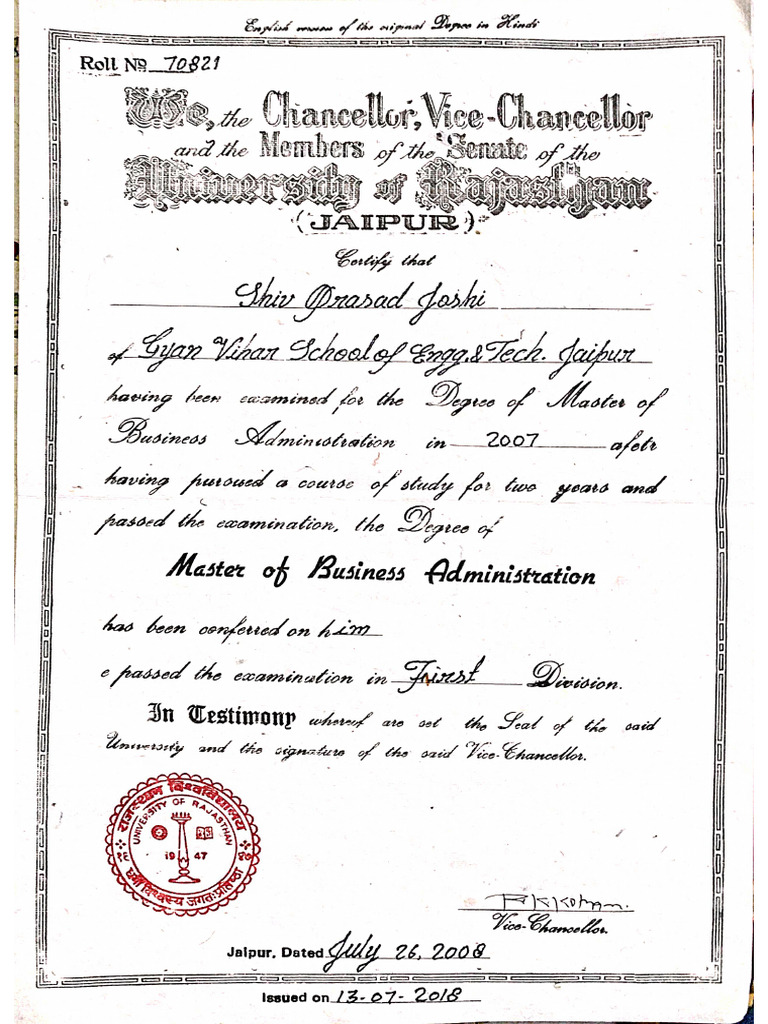 English version of the original Degree in Hindi
Roll No 70821
We, the Chancellor, Vice-Chancellor
and the Members of the Senate of the
University of Rajasthan
(JAIPUR)
Certify that
Shiv Prasad Joshi
of Gyan Vihar School of Engg. & Tech. Jaipur
having been examined for the Degree of Master of
Business Administration in 2007 afetr
having pursued a course of study for two years and
passed the examination, the Degree of
Master of Business Administration
has been conferred on him
e passed the examination in First Division.
In Testimony whereof are set the Seal of the said
University and the signature of the said Vice-Chancellor.
राजस्थान विश्वविद्यालय
UNIVERSITY OF RAJASTHAN
19 47
१९ ४७
धर्मो विश्वस्य जगतः प्रतिष्ठा
Vice-Chancellor.
Jaipur, Dated July 26, 2008
Issued on 13-07-2018